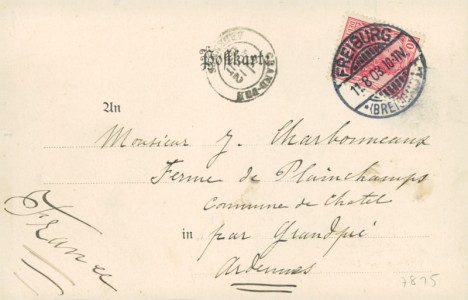 Postkarte
GRAND-PRÉ
FREIBURG
11.8.03.10-11V.
*(BREISGAU)*
An
Monsieur J. Charbonneaux
Ferme de Plainchamps
Commune de Chatel
in par Grandpré
Ardennes
France
7875